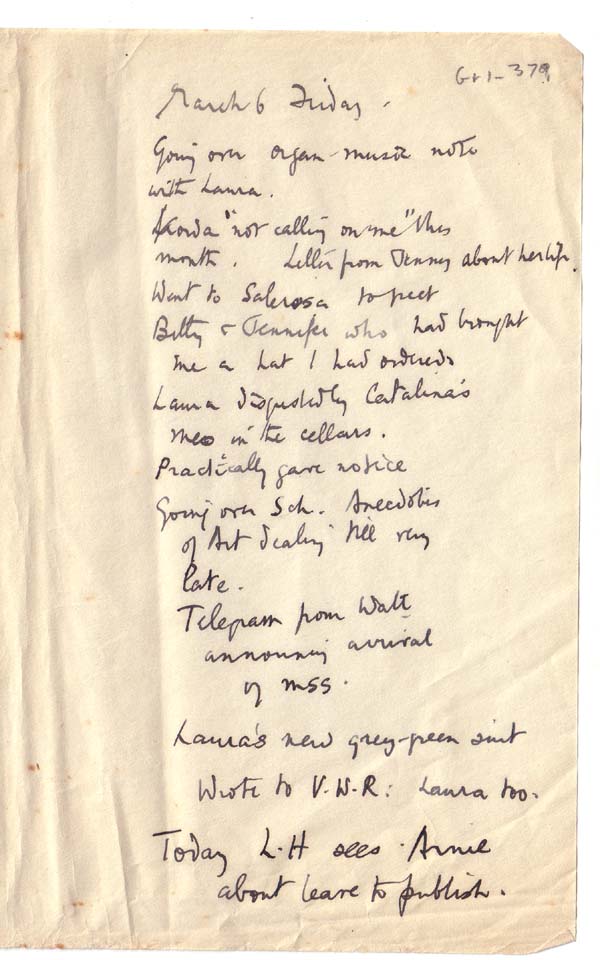 G+1-379
March 6 Friday.
Going over organ-music note
with Laura.
Korda "not calling on me" this
month. Letter from Jenny about her life.
Went to Salerosa to meet
Betty & Jennifer who had brought
me a hat I had ordered.
Laura disgustedly Catalina's
mess in the cellars.
Practically gave notice
Going over Sch. Anecdotes
of Art dealing till very
late.
Telegram from Watt
announcing arrival
of MSS.
Laura's new grey-green suit
Wrote to V.W-R: Laura too.
Today L.H sees Arnie
about leave to publish.